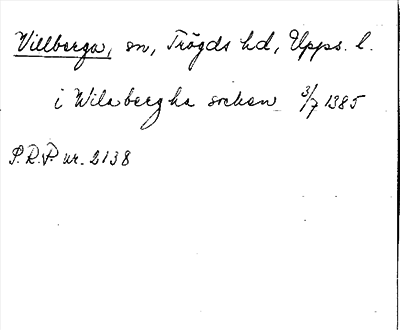 Villberga, sn, Trögds hd, Upps. l.
i Wilabergha sochen 3/7 1385
P.R.P. nr. 2138